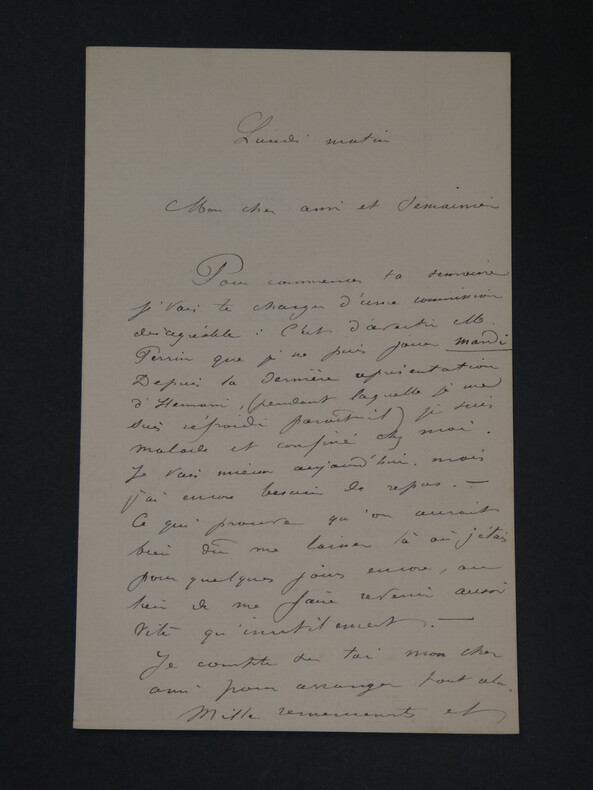 Lundi matin
Mon cher ami et Semainier
Pour commencer ta semaine
je vais te charger d'une commission
désagréable : C'est d'avertir M.
Perrin que je ne puis jouer mardi
Depuis la dernière représentation
d'Hernani, (pendant laquelle je me
suis refroidi paraît-il) je suis
malade et confiné chez moi.
Je vais mieux aujourd'hui. mais
j'ai encore besoin de repos. —
Ce qui prouve qu'on aurait
bien dû me laisser là où j'étais
pour quelques jours encore, au
lieu de me faire revenir aussi
vite qu'inutilement. —
Je compte sur toi mon cher
ami pour arranger tout cela.
Mille remerciements et